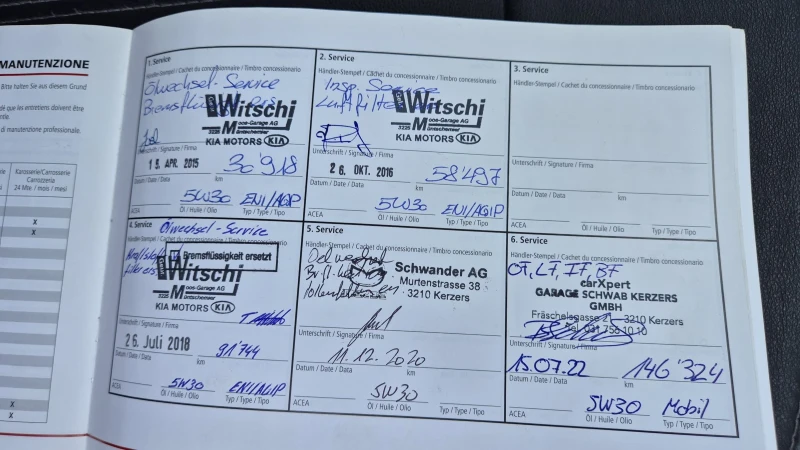 MANUTENZIONE
Bitte halten Sie aus diesem Grund
que les entretiens doivent être
di manutenzione professionale.
Karosserie/Carrosserie
Carrozzeria
24 Mte. / mois / mesi
X
X
X
X
1. Service
Händler-Stempel / Cachet du concessionnaire / Timbro concessionario
Ölwechsel-Service
Bremsflüssigkeit
Witschi
Moos-Garage AG
3225 Müntschemier
KIA MOTORS KIA
Unterschrift / Signature / Firma
15. APR. 2015
30'918
Datum / Date / Data
km
5W30
ENI/AGIP
ACEA
Öl / Huile / Olio
Typ / Type / Tipo
2. Service
Händler-Stempel / Cachet du concessionnaire / Timbro concessionario
Insp. Service
Luftfilter
Witschi
Moos-Garage AG
3225 Müntschemier
KIA MOTORS KIA
Unterschrift / Signature / Firma
26. OKT. 2016
58'497
Datum / Date / Data
km
5W30
ENI/AGIP
ACEA
Öl / Huile / Olio
Typ / Type / Tipo
3. Service
Händler-Stempel / Cachet du concessionnaire / Timbro concessionario
Unterschrift / Signature / Firma
Datum / Date / Data
km
ACEA
Öl / Huile / Olio
Typ / Type / Tipo
4. Service
Ölwechsel-Service
Händler-Stempel / Cachet du concessionnaire / Timbro concessionario
Bremsflüssigkeit ersetzt
Witschi
Moos-Garage AG
3225 Müntschemier
KIA MOTORS KIA
Unterschrift / Signature / Firma
26. Juli 2018
91'744
Datum / Date / Data
km
5W30
ENI/AGIP
ACEA
Öl / Huile / Olio
Typ / Type / Tipo
5. Service
Händler-Stempel / Cachet du concessionnaire / Timbro concessionario
Schwander AG
Murtenstrasse 38
3210 Kerzers
Unterschrift / Signature / Firma
11.12.2020
Datum / Date / Data
km
5W30
ACEA
Öl / Huile / Olio
Typ / Type / Tipo
6. Service
Händler-Stempel / Cachet du concessionnaire / Timbro concessionario
ÖF, LF, IF, BF
carXpert
GARAGE SCHWAB KERZERS
GMBH
Fräschelsgasse 3210 Kerzers
Tel. 031 756 10 10
Unterschrift / Signature / Firma
15.07.22
146'324
Datum / Date / Data
km
5W30
Mobil
ACEA
Öl / Huile / Olio
Typ / Type / Tipo